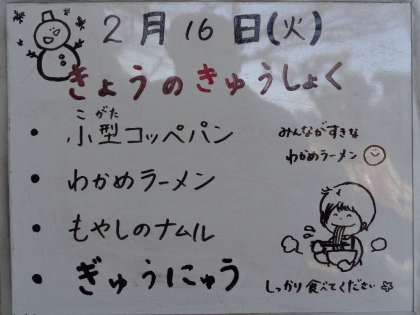 2月16日(火)
きょうのきゅうしょく
こがた
・小型コッペパン
・わかめラーメン
・もやしのナムル
・ぎゅうにゅう
みんながすきな
わかめラーメン
しっかり食べてください